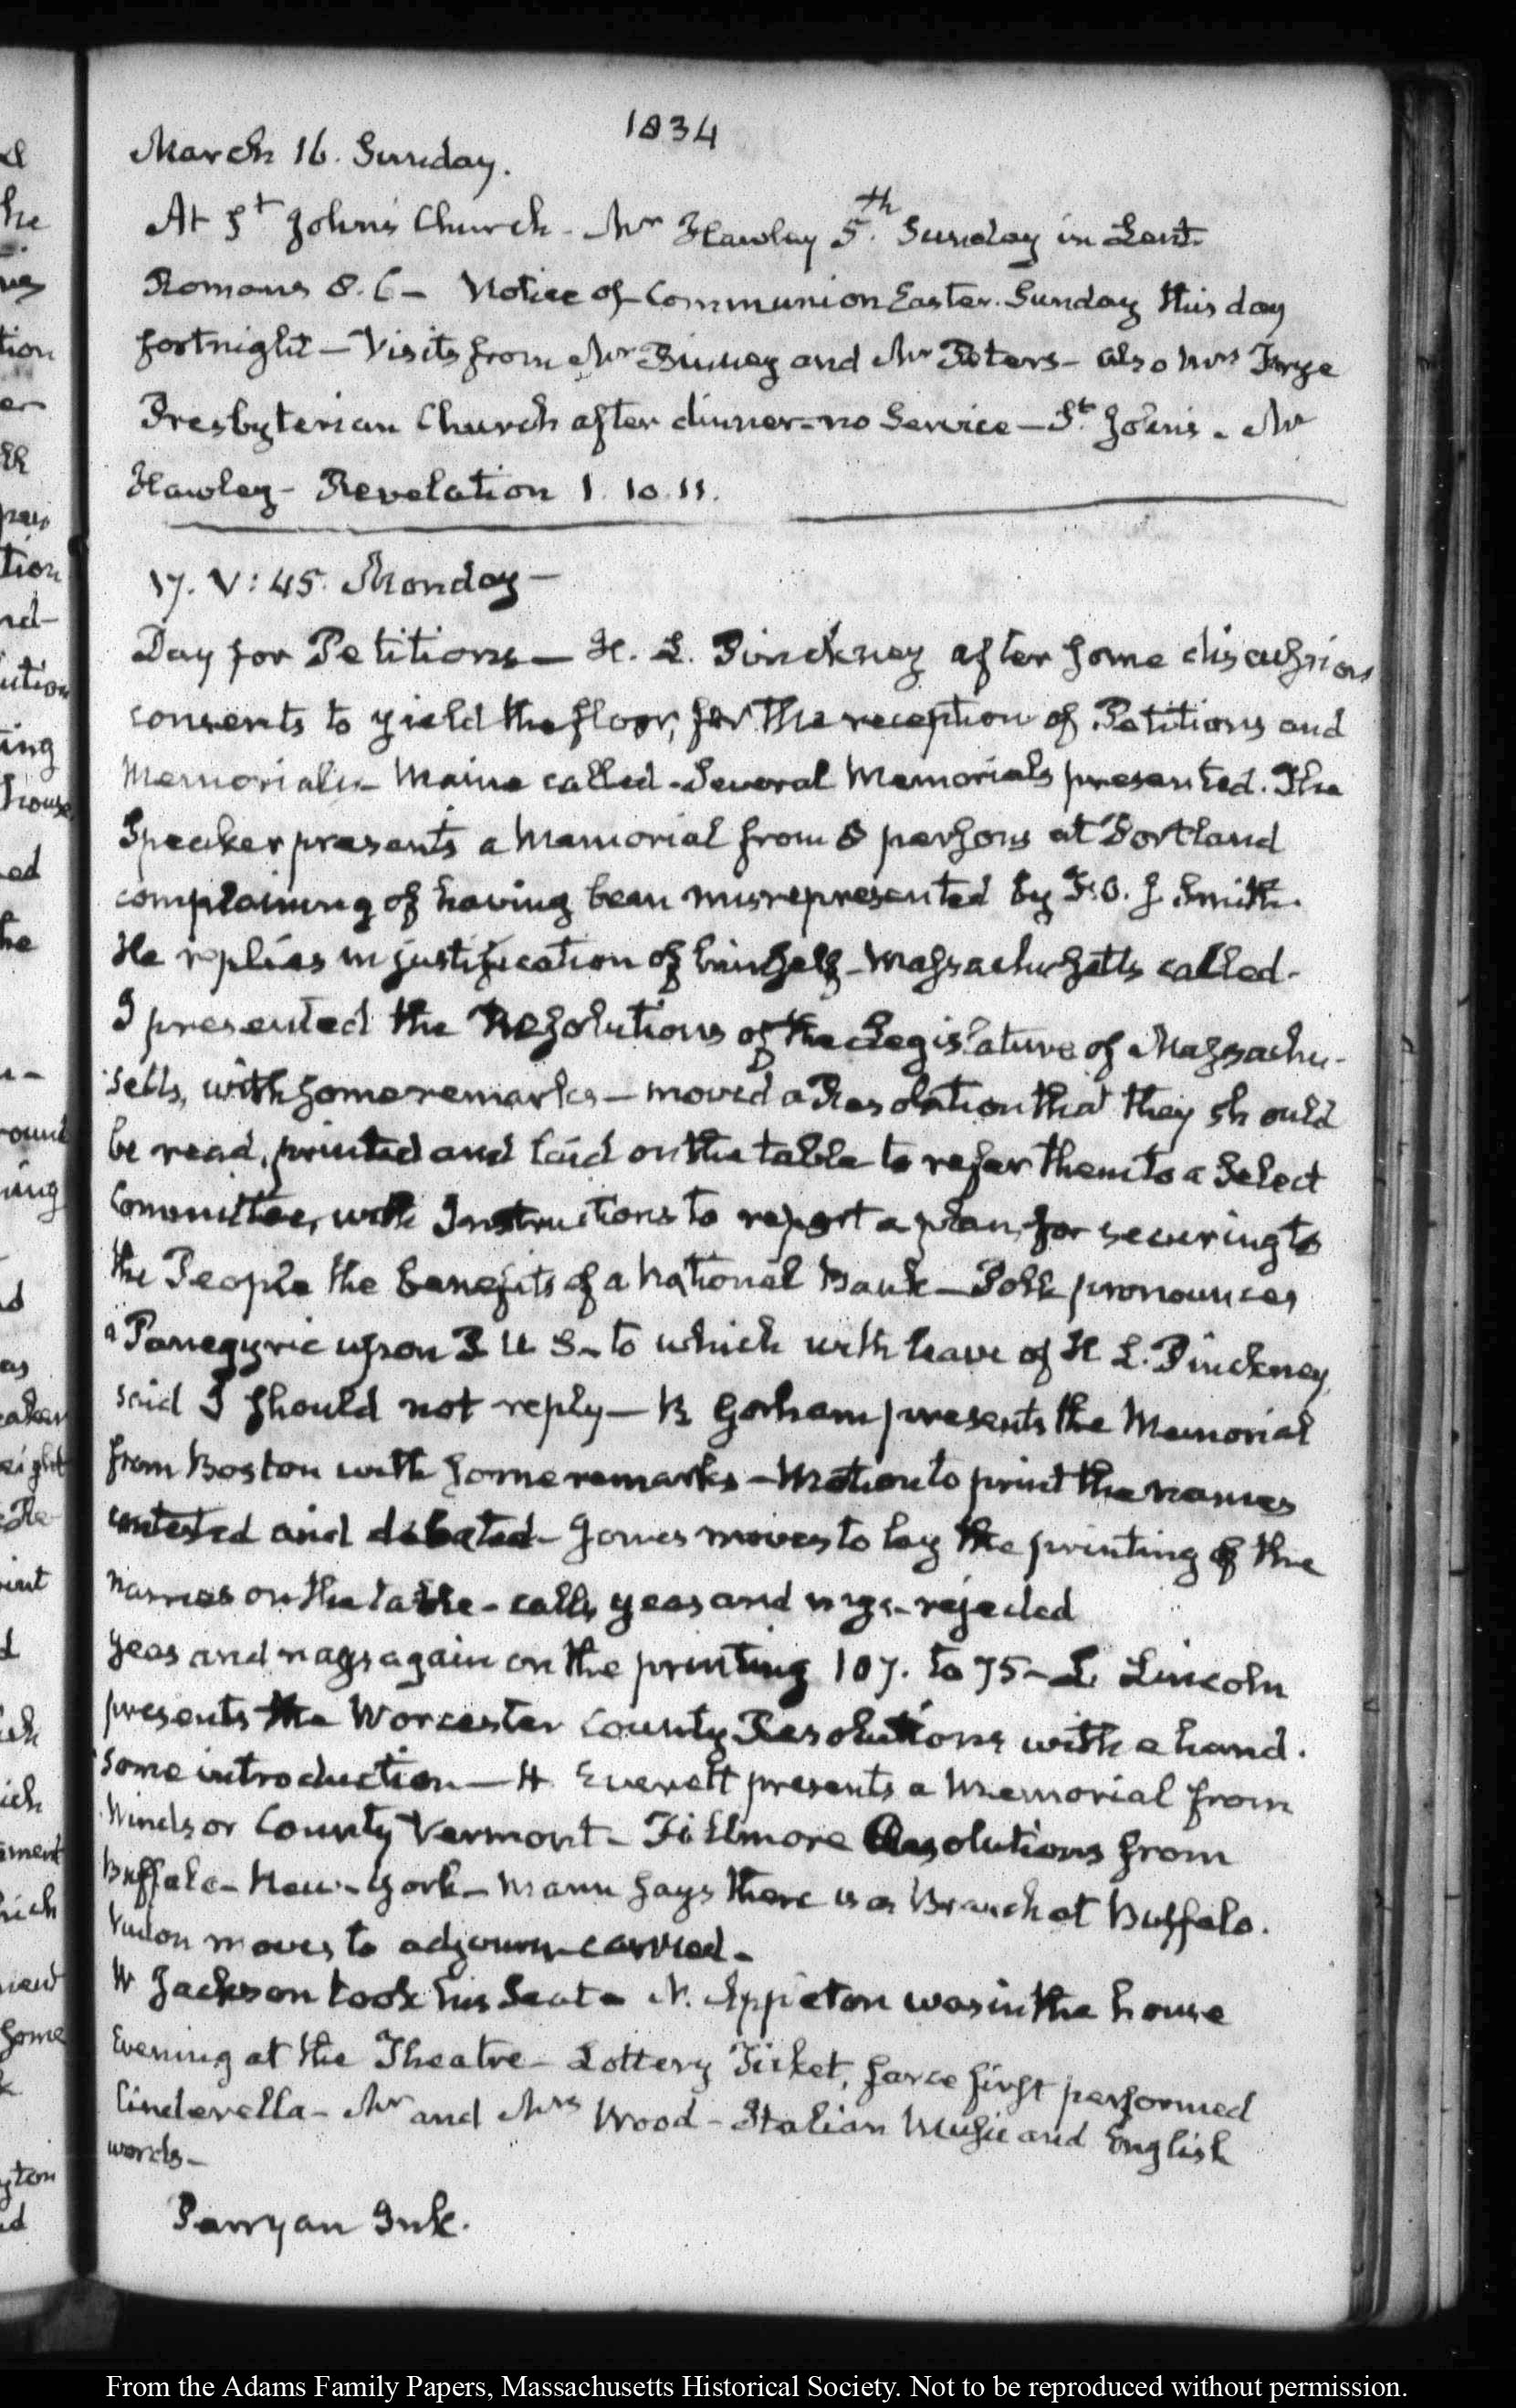 1834
March 16. Sunday.
At St Johns Church - Mr Hawley 5th. Sunday in Lent.
Romans 8. 6 - Notice of Communion Easter. Sunday this day
fortnight - Visits from Mr Binney and Mr Peters - also Mrs Frye
Presbyterian Church after dinner - no Service - St. John's. Mr
Hawley - Revelation 1. 10. 11.
17. V: 45. Monday -
Day for Petitions - H. L. Pinckney after some discussions
consents to yield the floor, for the reception of Petitions and
Memorials - Maine called - Several Memorials presented. The
Speaker presents a Memorial from 8 persons at Portland
complaining of having been misrepresented by F. O. J. Smith.
He replies in justification of himself - Massachusetts called -
I presented the Resolutions of the Legislature of Massachu-
setts, with some remarks - moved a Resolution that they should
be read, printed and laid on the table to refer them to a Select
Committee, with Instructions to report a plan, for securing to
the People the benefits of a National Bank - Polk pronounces
a Panegyric upon B U S - to which with leave of H L. Pinckney
said I should not reply - B Gorham presents the Memorial
from Boston with some remarks - Motion to print the names
contested and debated - Jones moves to lay the printing of the
names on the table - calls yeas and nays - rejected
yeas and nays again on the printing 107. to 75 - L. Lincoln
presents the Worcester County Resolutions with a hand.
some introduction - H. Everett presents a Memorial from
Windsor County Vermont - Fillmore Resolutions from
Buffalo - New-York - Mann says there is a Branch at Buffalo.
Vinton moves to adjourn - carried -
W Jackson took his Seat - N. Appleton was in the house
Evening at the Theatre - Lottery Ticket, farce first performed
Cinderella - Mr and Mrs Wood - Italian Music and English
words -
Perryan Ink.
From the Adams Family Papers, Massachusetts Historical Society. Not to be reproduced without permission.